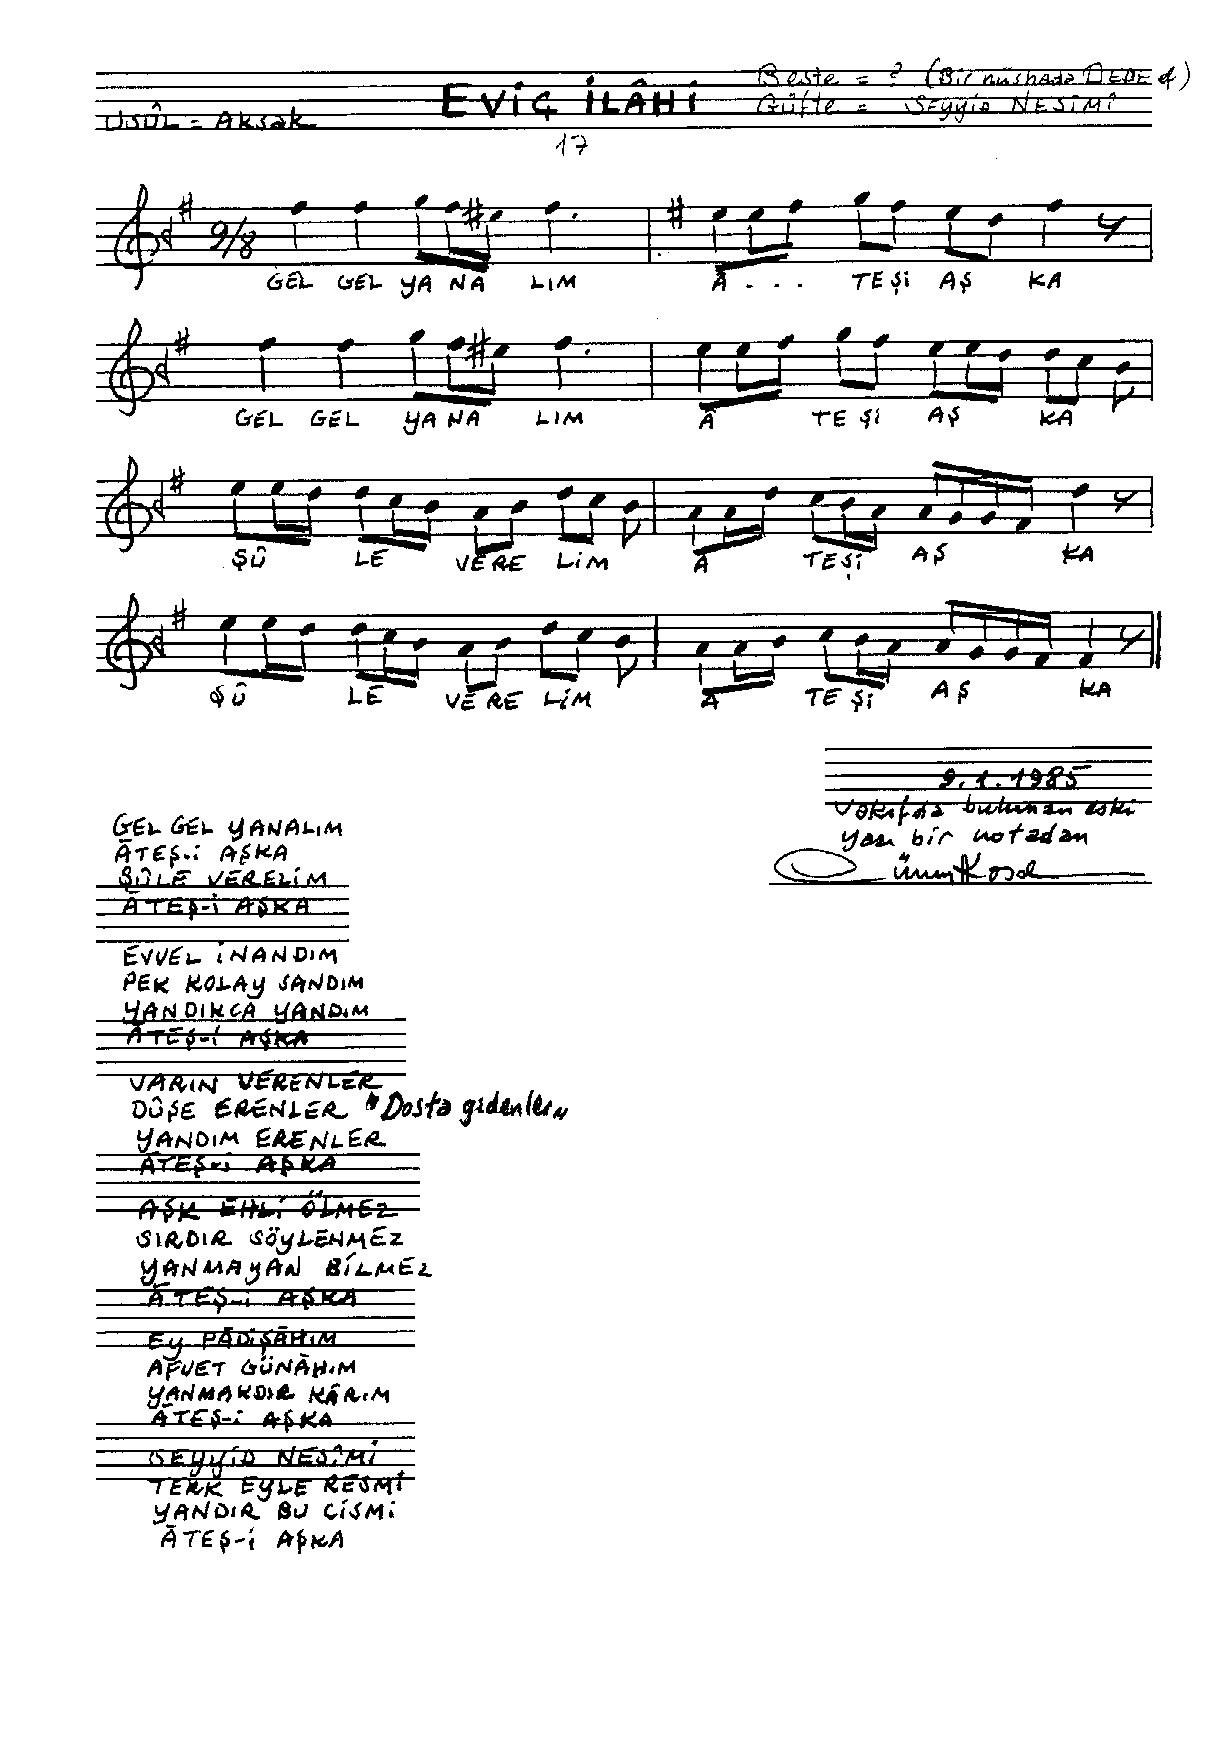 Beste = ? (Bir nüshada DEDE ef)
EVİÇ İLÂHİ
Güfte = SEYYİD NESİMÎ
USÛL = Aksak
17
9/8
GEL GEL YA NA LIM Â... TEŞİ AŞ KA
GEL GEL YA NA LIM Â TE Şİ AŞ KA
ŞÛ LE VERE LİM Â TEŞİ AŞ KA
ŞÛ LE VE RE LİM Â TE Şİ AŞ KA
9.1.1985
Vakıfda bulunan eski
yazı bir notadan
GEL GEL YANALIM
ÂTEŞ-İ AŞKA
ŞÛLE VERELİM
ÂTEŞ-İ AŞKA
EVVEL İNANDIM
PEK KOLAY SANDIM
YANDIKCA YANDIM
ÂTEŞ-İ AŞKA
VARIN VERENLER
DÛŞE ERENLER "Dosta gidenler"
YANDIM ERENLER
ÂTEŞ-İ AŞKA
AŞK EHLİ ÖLMEZ
SIRDIR SÖYLENMEZ
YANMAYAN BİLMEZ
ÂTEŞ-İ AŞKA
EY PÂDİŞÂHIM
AFVET GÜNÂHIM
YANMAKDIR KÂRIM
ÂTEŞ-İ AŞKA
SEYYİD NESÎMİ
TERK EYLE RESMİ
YANDIR BU CİSMİ
ÂTEŞ-İ AŞKA